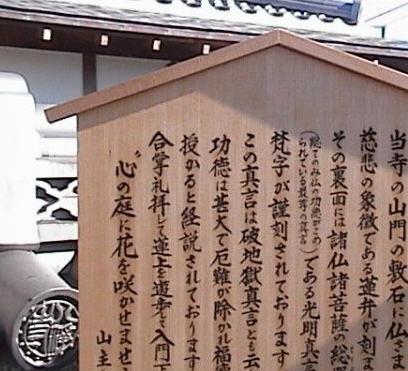 当寺の山門の敷石に仏さま
慈悲の象徴である蓮弁が刻ま
その裏面には諸仏諸菩薩の総
(総てのみ仏の功徳がこの
られている最尊の真言)である光明真言
梵字が謹刻されております
この真言は破地獄真言とも云
功徳は甚大で厄難が除かれ福徳
授かると経説されております
合掌礼拝して蓮上を遊歩して入門下
〝心の庭に花を咲かせませ
山主